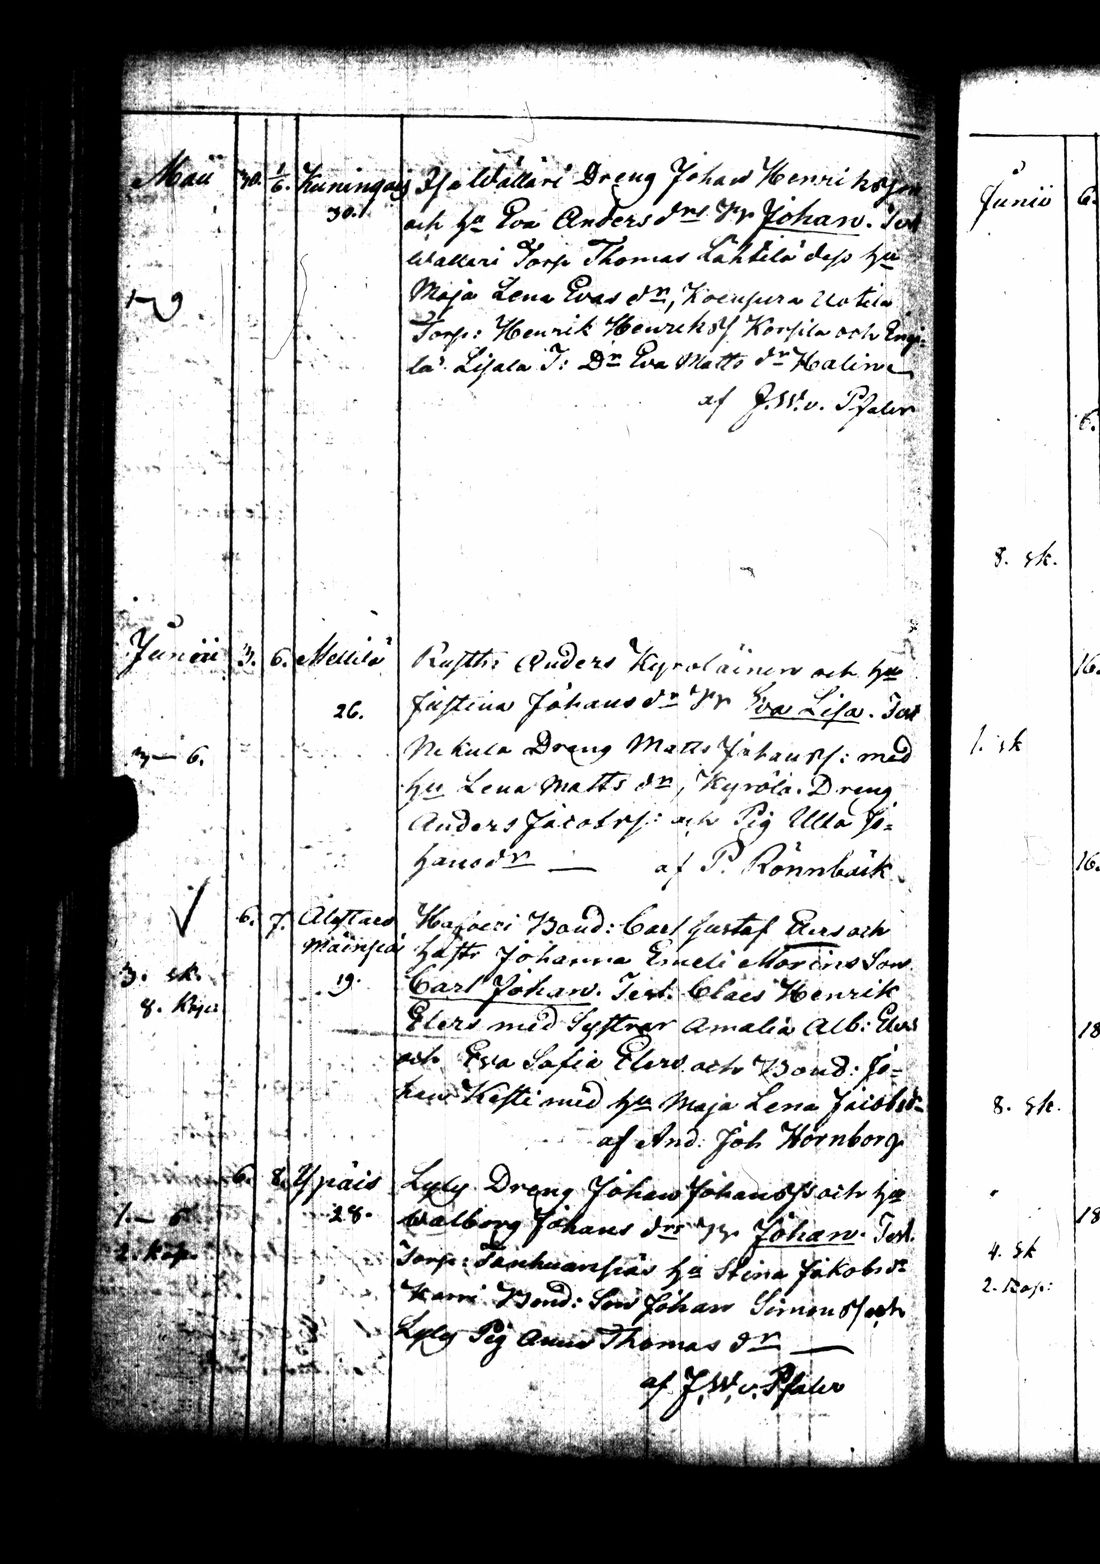 Maii 30. 1/6. Kuningais Isowälläri Dreng Johan Henriksson
30. och hu Eva Anders dr Ss Johan. Test
Wällari Torp Thomas Lähtilä dess hu
1 - 9 Maja Lena Evas dr, Koenpera Uotila
Torp: Henrik Henrikss Korpila och Engi-
lä Lisala T: Dr Eva Matts dr Haline
af J.W.v. Pfaler
Junii 3. 6. Mellilä Rusth: Anders Kyroläinen och hu
26. Justina Johans dr Ss Eva Lisa. Test
3 - 6. Nikula Dreng Matts Johanss: med
hu Lena Matts dr, Kyrölä Dreng
Anders Jacobss: och Pig Ulla Jo-
hans dr — af P. Rönnbäck
6. 7. Alastaro Bond: Carl Gustaf Elers och
hustr Johanna Emeli Morins Son
3. sk. 19. Carl Johan. Test: Claes Henrik
8. Kop Elers med Systrar Amalia Alb: Elers
och Eva Sofia Elers och Bond: Jo-
han Kesti med hu Maja Lena Jacobs dr
af And: Joh Hörnborg
6. 8. Ypäis Lyly Dreng Johan Johanss och hu
28. Walborg Johans dr Ss Johan. Test.
2. kop. Torp: Tanhuanpää hu Stina Jakobs dr
Karri Bond: Son Johan Simonss och
Lyly Pig Anna Thomas dr —
af J.W.v. Pfaler
Junii 6.
6.
8. sk.
16.
1. sk
16.
18
8. sk.
18
4. sk
2. kop: